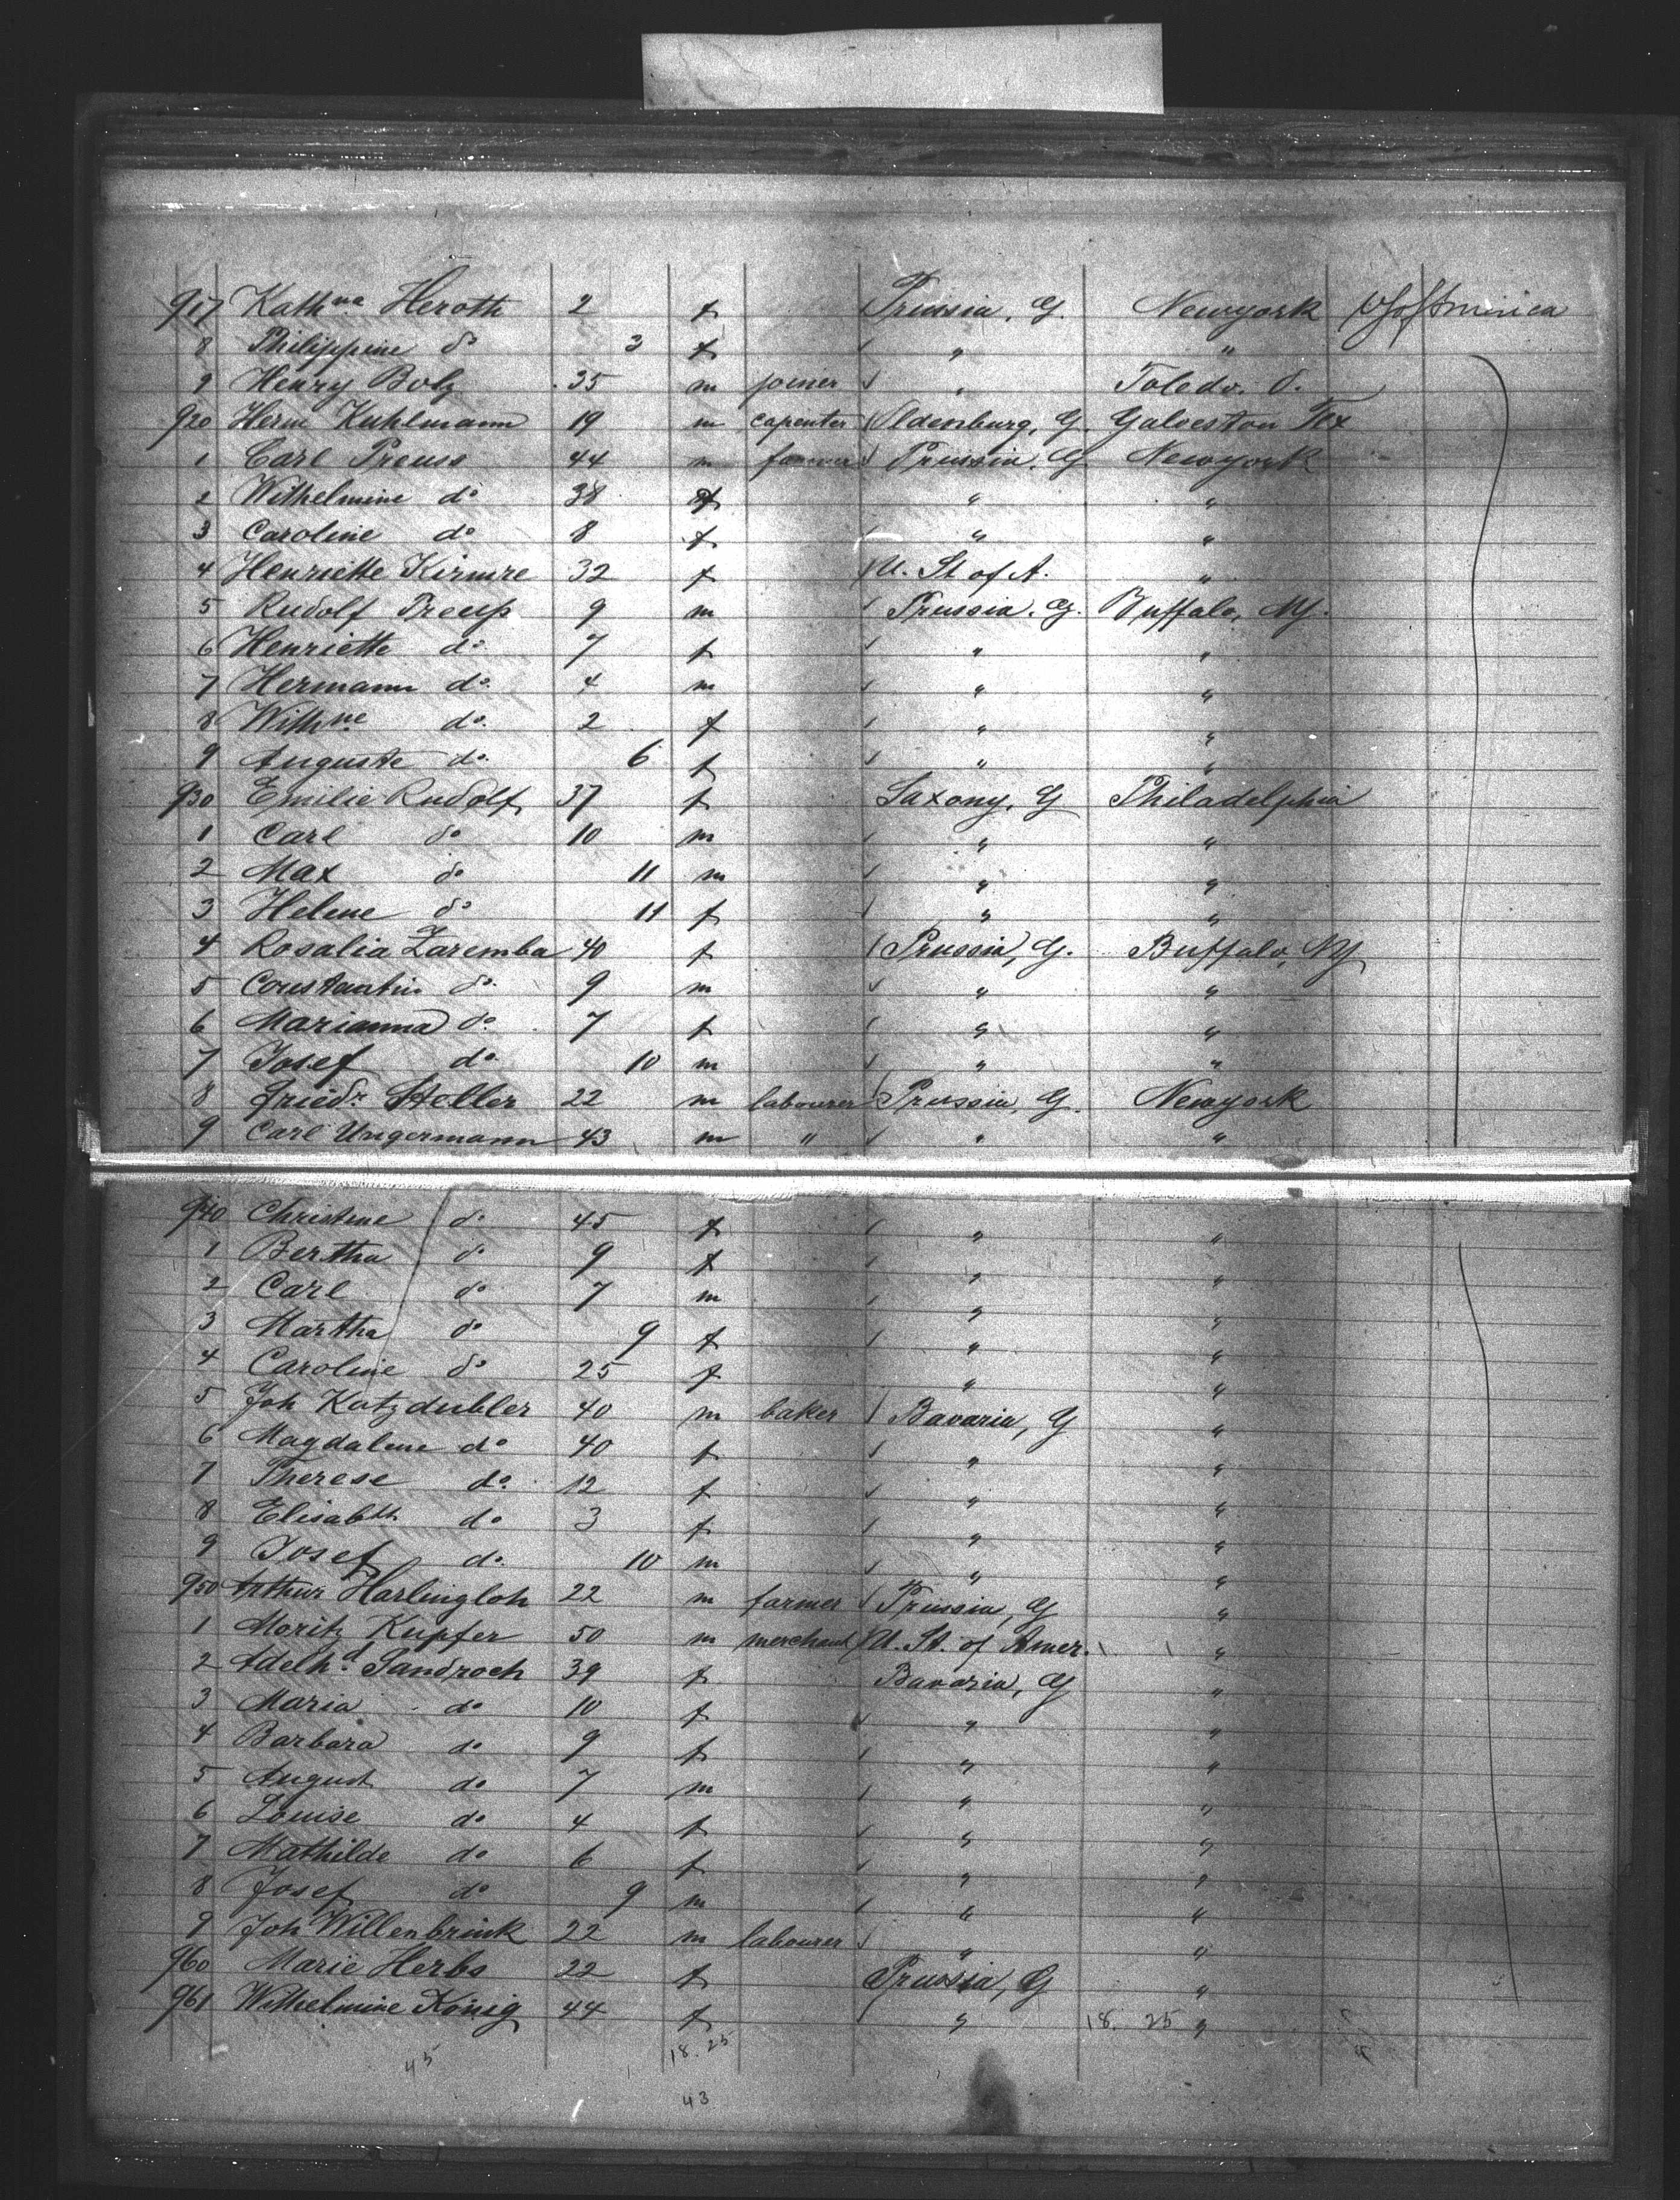 917 Kath.na Heroth 2 f Prussia, G. Newyork U S of America
8 Philippine do 3 f " "
9 Henry Bolz 35 m joiner " Toledo. O.
920 Herm Kuhlmann 19 m capenter Oldenburg, G. Galveston Tex
1 Carl Preuss 44 m farmer Prussia, G Newyork
2 Wilhelmine do 38 f " "
3 Caroline do 8 f " "
4 Henriette Kirmre 32 f U. St of A. "
5 Rudolf Preuss 9 m Prussia. G. Buffalo, NY.
6 Henriette do 7 f " "
7 Hermann do. 4 m " "
8 Wilh.ne do. 2 f " "
9 Auguste do. 6 f " "
930 Emilie Rudolf 37 f Saxony, G Philadelphia
1 Carl do 10 m " "
2 Max do 11 m " "
3 Helene do 11 f " "
4 Rosalia Zaremba 40 f Prussia, G. Buffalo, NY
5 Constantin do. 9 m " "
6 Marianna do. 7 f " "
7 Josef do. 10 m " "
8 Friedr. Steller 22 m labourer Prussia, G. Newyork
9 Carl Ungermann 43 m " " "
940 Christine do 45 f " "
1 Bertha do 9 f " "
2 Carl do 7 m " "
3 Martha do 9 f " "
4 Caroline do 25 f " "
5 Joh Katzdubler 40 m baker Bavaria, G "
6 Magdalene do 40 f " "
7 Therese do. 12 f " "
8 Elisabeth do 3 f " "
9 Josef do. 10 m " "
950 Arthur Harlingloh 22 m farmer Prussia, G "
1 Moritz Kupfer 50 m merchant U. St. of Amer. "
2 Adelh.d Sandroch 39 f Bavaria, G "
3 Maria do 10 f " "
4 Barbara do 9 f " "
5 August do 7 m " "
6 Louise do 4 f " "
7 Mathilde do 6 f " "
8 Josef do 9 m " "
9 Joh Willenbrink 22 m labourer " "
960 Marie Herbs 22 f Prussia, G "
961 Wilhelmine König 44 f " 18. 25 "
45 18.25
43